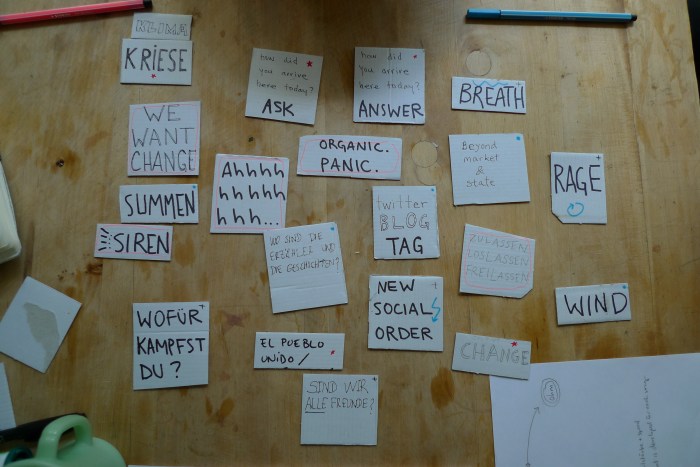 KLIMA
KRIESE
how did
you arrive
here today?
ASK
how did
you arrive
here today?
ANSWER
BREATH
WE
WANT
CHANGE
Ahhh
hhhhh
hhh...
ORGANIC.
PANIC.
Beyond
market
&
state
RAGE
SUMMEN
SIREN
twitter
BLOG
TAG
WO SIND DIE
ERZÄHLER UND
DIE GESCHICHTEN?
ZULASSEN
LOSLASSEN
FREILASSEN
NEW
SOCIAL
ORDER
WIND
WOFÜR
KAMPFST
DU?
EL PUEBLO
UNIDO/
CHANGE
SIND WIR
ALLE FREUNDE?